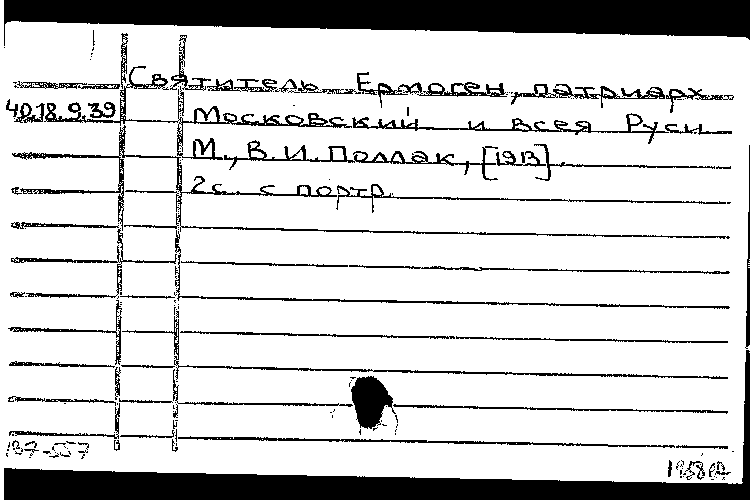 Святитель Ермоген, патриарх
40.18.9.39 Московский и всея Руси
М., В.И. Поллак, [1913].
2с. с портр.
137-557